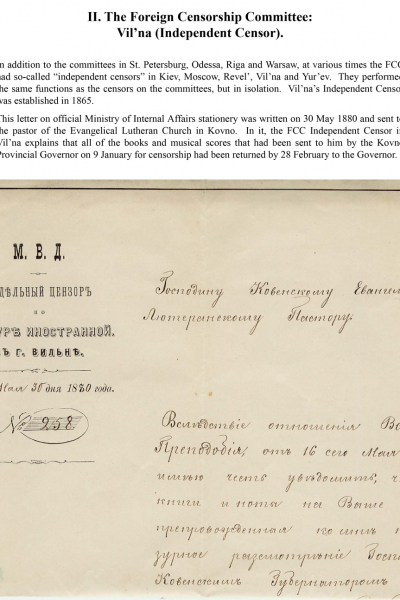 II. The Foreign Censorship Committee:
Vil’na (Independent Censor).
n addition to the committees in St. Petersburg, Odessa, Riga and Warsaw, at various times the FCC
had so-called “independent censors” in Kiev, Moscow, Revel’, Vil’na and Yur’ev. They performed
the same functions as the censors on the committees, but in isolation. Vil’na’s Independent Censor
was established in 1865.
This letter on official Ministry of Internal Affairs stationery was written on 30 May 1880 and sent to
the pastor of the Evangelical Lutheran Church in Kovno. In it, the FCC Independent Censor in
Vil’na explains that all of the books and musical scores that had been sent to him by the Kovno
Provincial Governor on 9 January for censorship had been returned by 28 February to the Governor.
М. В. Д.
ДѢЛЬНЫЙ ЦЕНЗОРЪ
ПО
УРѢ ИНОСТРАННОЙ.
Ъ Г. ВИЛЬНѢ.
Мая 30 дня 1880 года.
№ 258
Господину Ковенскому Евангел
Лютеранскому Пастору.
Вслѣдствіе отношенія Ва
Преподобія, отъ 16 сего Мая
имѣю честь увѣдомить, ч
книги и нота на Ваше
препровожденная ко мнѣ н
зурное разсмотрѣніе Госп
Ковенскимъ Губернаторомъ